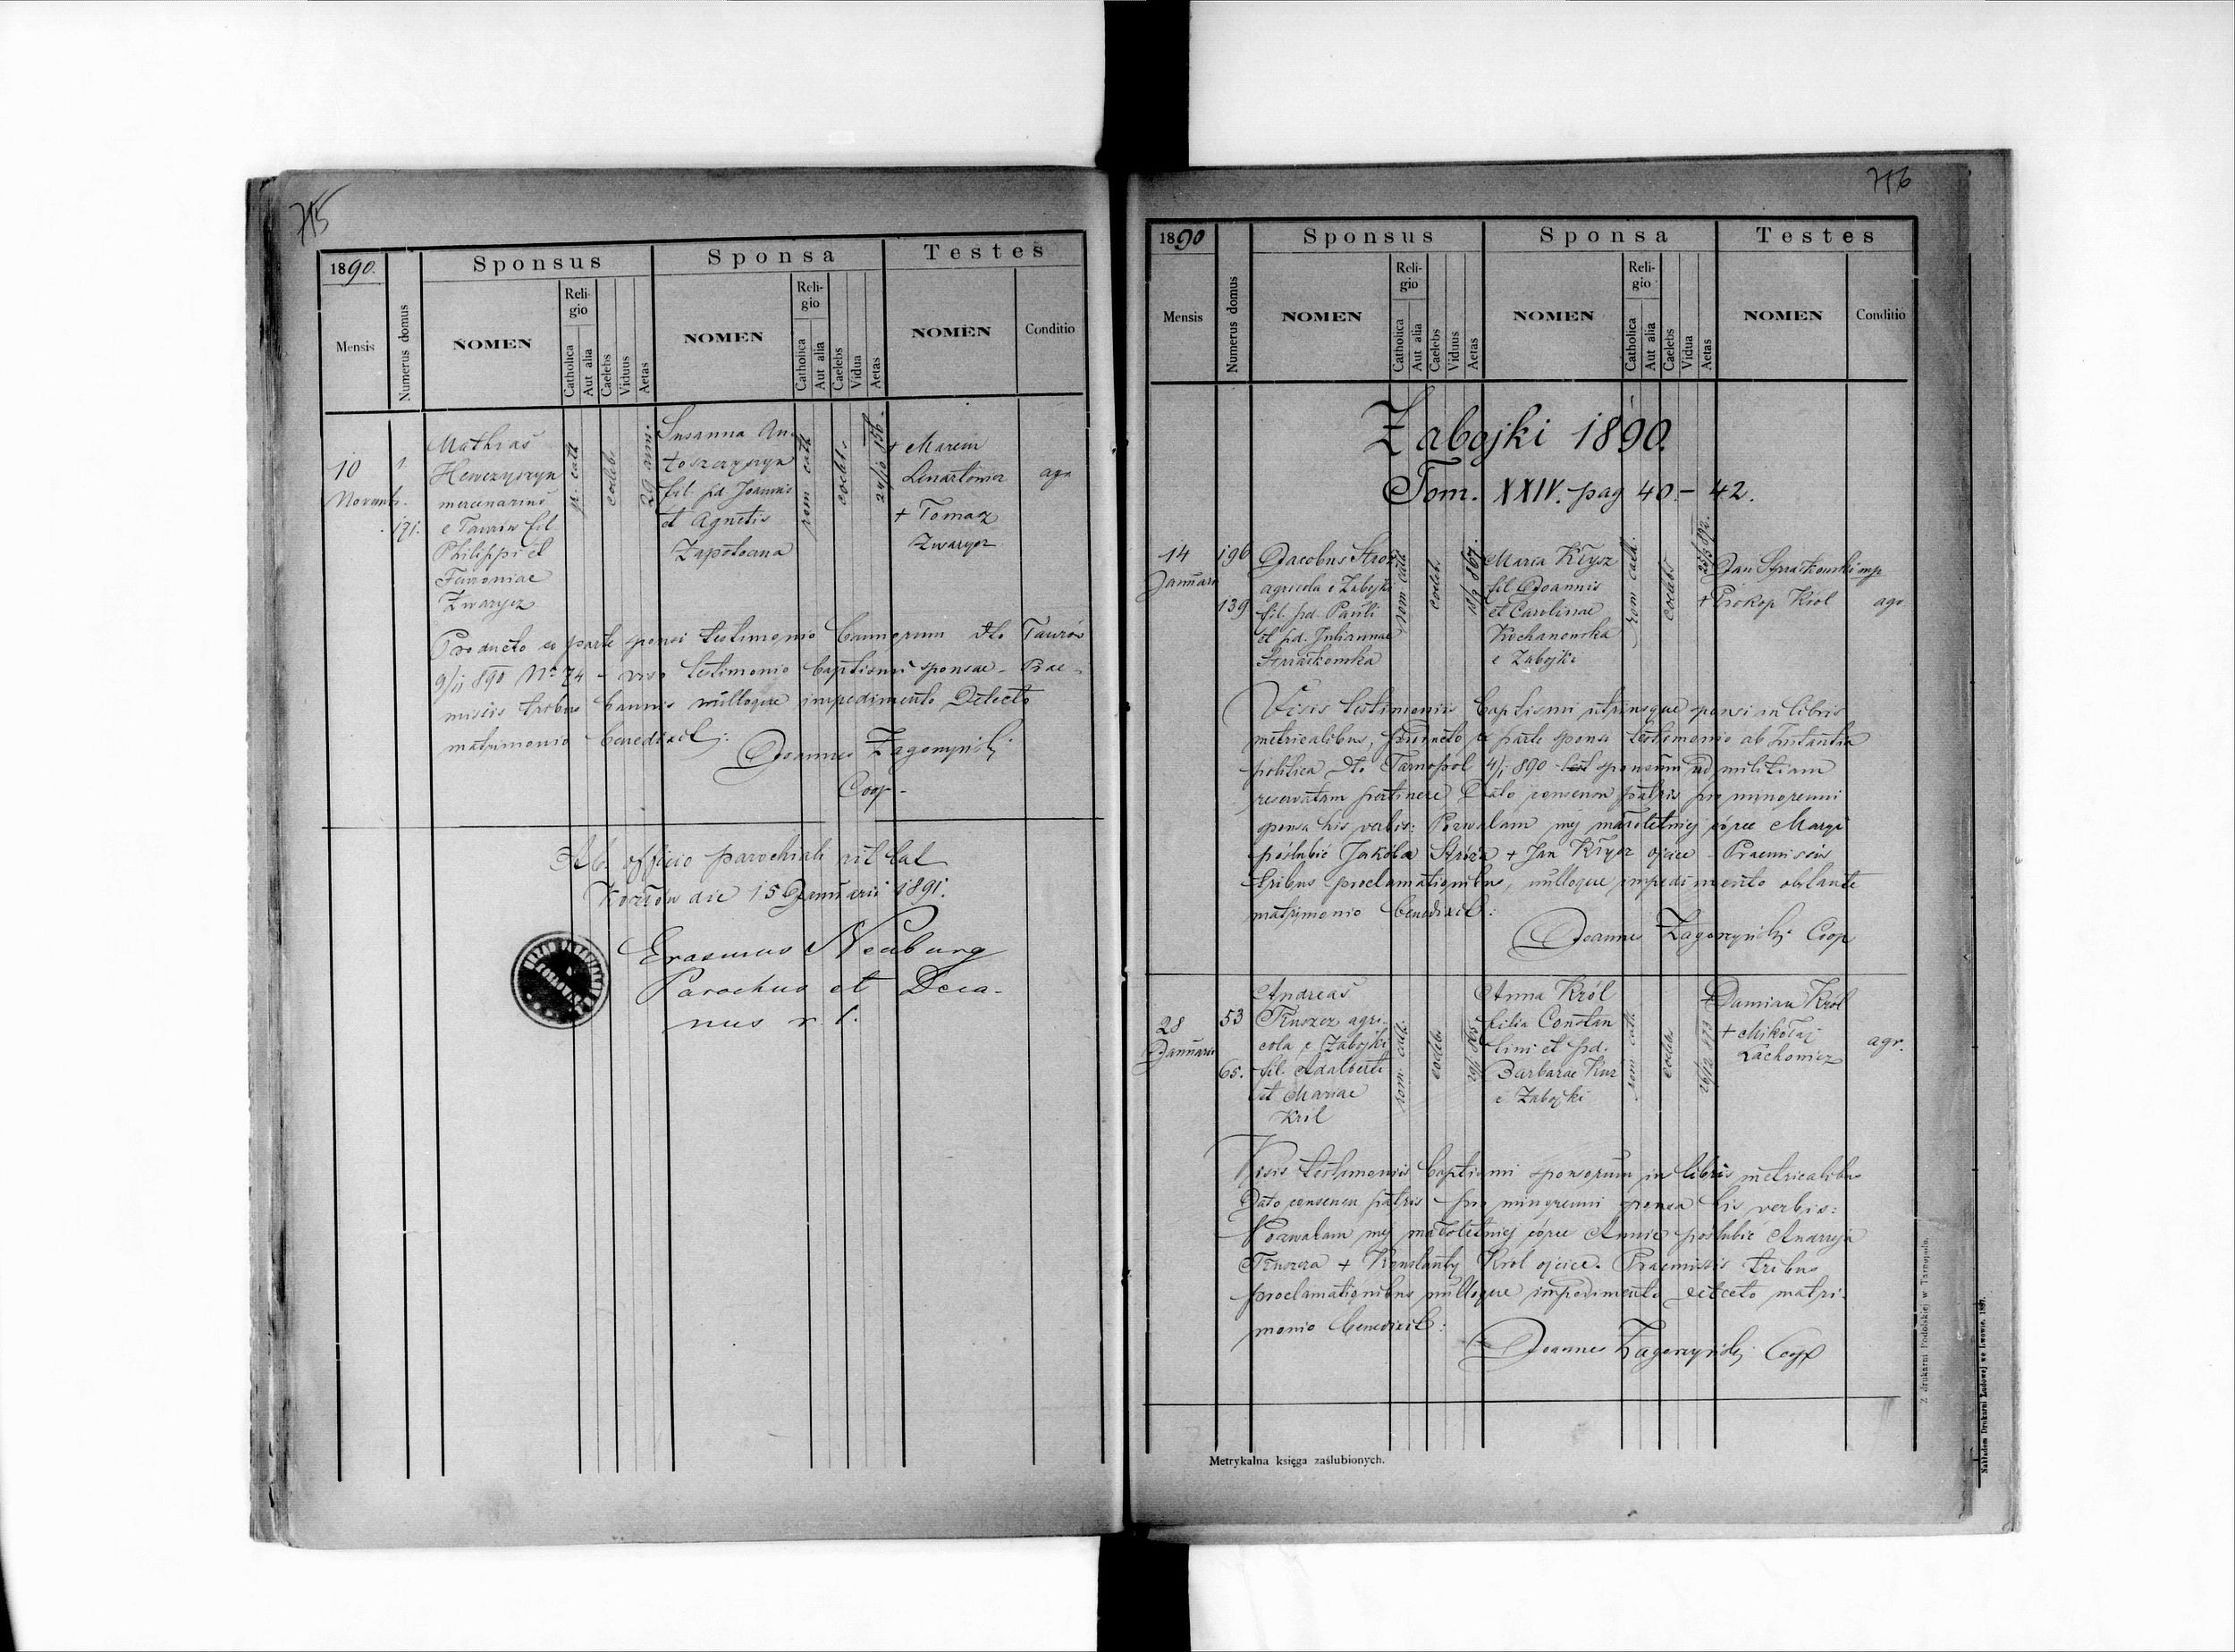 715
1890.
Mensis
Numerus domus
Sponsus
NOMEN
Religio
Catholica
Aut alia
Caelebs
Viduus
Aetas
Sponsa
NOMEN
Religio
Catholica
Aut alia
Caelebs
Vidua
Aetas
Testes
NOMEN
Conditio
10
Novemb.
171.
Mathias
Hewczyszyn
mercenarius
e Taurów fil
Philippi et
Zwarycz
gr. cath
coelebs
29 ann.
Susanna An-
toszczyszyn
fil. pd Joannis
et Agnetis
Zapotoczna
rom cath
coelebs
+ Marcin
Lenartowicz
+ Tomasz
Zwarycz
agr
Producto ex parte sponsi testimonio bannorum dto Taurów
9/11 890 Nr. 74 - viso testimonio baptismi sponsae - Prae-
missis tribus bannis nulloque impedimento detecto
matrimonio benedixit:
Joannes Zagórzyński
Coop.
Ab officio parochiali rit lat
Kozłów die 15 Januarii 1891.
Erasmus Neuburg
Parochus et Deca-
nus r. l.
716
1890
Mensis
Numerus domus
Sponsus
NOMEN
Religio
Catholica
Aut alia
Caelebs
Viduus
Aetas
Sponsa
NOMEN
Religio
Catholica
Aut alia
Caelebs
Vidua
Aetas
Testes
NOMEN
Conditio
Zabojki 1890.
Tom. XXIV. pag 40.- 42.
14
Januarii
196
139
Jacobus Stróż
agricola e Zabojki
fil. pd. Pauli
et pd. Juliannae
rom cath
coelebs
Maria Kłysz
fil Joannis
et Carolinae
Kochanowska
e Zabojki
rom cath.
coelebs
+ Prokop Król
agr
Visis testimoniis baptismi utriusque sponsi in libris
metricalibus, producto ex parte sponsi testimonio ab Instantia
politica dto Tarnopol 4/1 890 sponsum ad militiam
reservatam pertinere, Dato consensu patris pro minorenni
sponsa his verbis: Pozwalam mej małoletniej córce Maryi
poślubić Jakóba Stróża + Jan Kłysz ojciec - Praemissis
tribus proclamationibus, nulloque impedimento obstante
matrimonio benedixit:
Joannes Zagórzyński Coop
28
Januarii
53
65.
Andreas
Truszcz agri-
cola e Zabojki
fil. Adalberti
et Mariae
Król
rom. cath.
coelebs
Anna Król
filia Constan
tini et pd.
Barbarae Kur
e Zabojki
rom cath
coelebs
+ Damian Król
+ Mikołaj
Lachowicz
agr.
Visis testimoniis baptismi sponsorum in libris metricalibus
Dato consensu patris pro minorenni sponsa his verbis:
Pozwalam mej małoletniej córce Annie poślubić Andrzeja
Truszcza + Konstanty Król ojciec. Praemissis tribus
proclamationibus nulloque impedimento detecto matri-
monio benedixit:
Joannes Zagórzyński Coop
Metrykalna księga zaślubionych.
Z drukarni Podolskiej w Tarnopolu.
Nakładem Drukarni Ludowej we Lwowie. 1897.